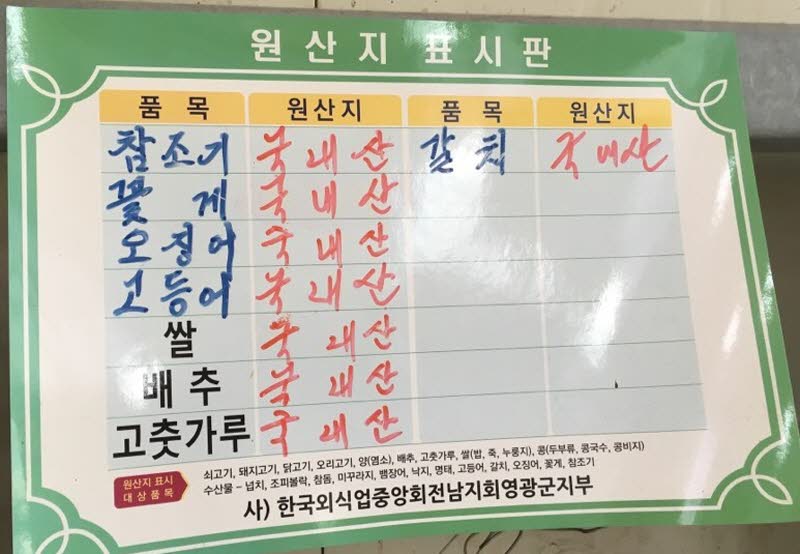 원산지 표시판
품목 원산지 품목 원산지
참조기 국내산 갈치 국내산
꽃게 국내산
오징어 국내산
고등어 국내산
쌀 국내산
배추 국내산
고춧가루 국내산
원산지 표시 대상품목
쇠고기, 돼지고기, 닭고기, 오리고기, 양(염소), 배추, 고춧가루, 쌀(밥, 죽, 누룽지), 콩(두부류, 콩국수, 콩비지)
수산물 - 넙치, 조피볼락, 참돔, 미꾸라지, 뱀장어, 낙지, 명태, 고등어, 갈치, 오징어, 꽃게, 참조기
사) 한국외식업중앙회전남지회영광군지부